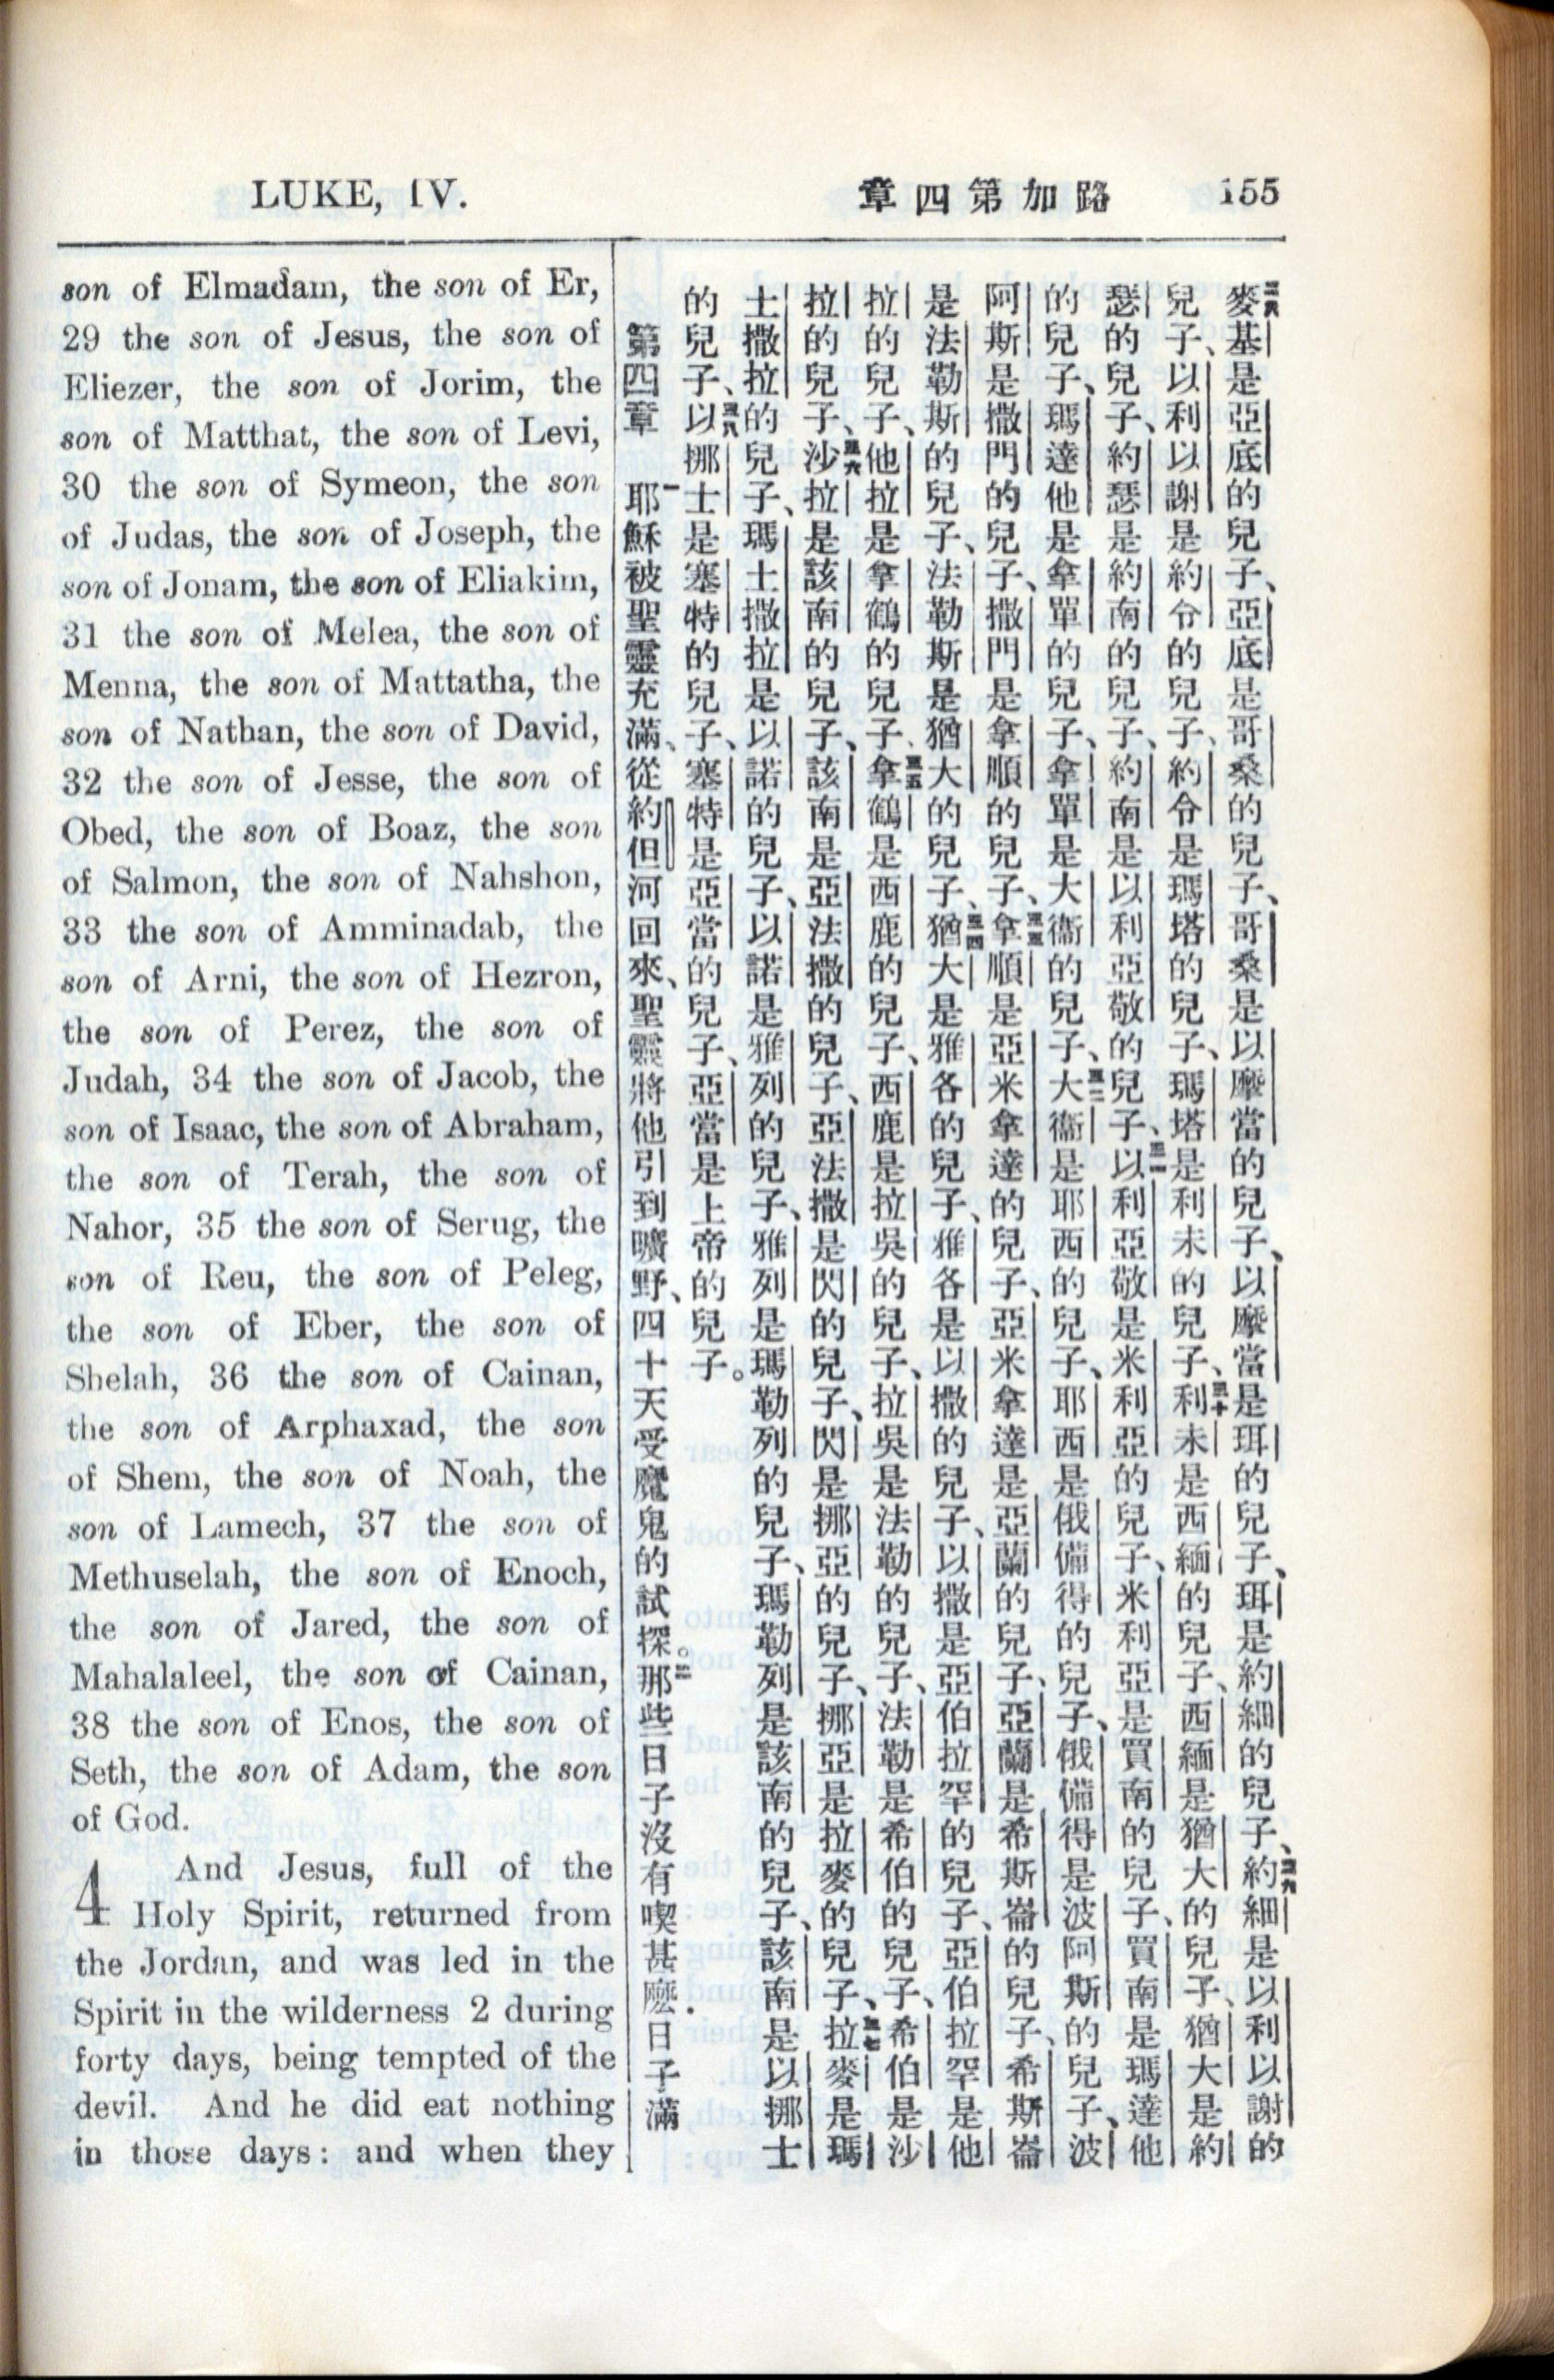 LUKE, IV.
路加第四章
155
son of Elmadam, the son of Er,
29 the son of Jesus, the son of
Eliezer, the son of Jorim, the
son of Matthat, the son of Levi,
30 the son of Symeon, the son
of Judas, the son of Joseph, the
son of Jonam, the son of Eliakim,
31 the son of Melea, the son of
Menna, the son of Mattatha, the
son of Nathan, the son of David,
32 the son of Jesse, the son of
Obed, the son of Boaz, the son
of Salmon, the son of Nahshon,
33 the son of Amminadab, the
son of Arni, the son of Hezron,
the son of Perez, the son of
Judah, 34 the son of Jacob, the
son of Isaac, the son of Abraham,
the son of Terah, the son of
Nahor, 35 the son of Serug, the
son of Reu, the son of Peleg,
the son of Eber, the son of
Shelah, 36 the son of Cainan,
the son of Arphaxad, the son
of Shem, the son of Noah, the
son of Lamech, 37 the son of
Methuselah, the son of Enoch,
the son of Jared, the son of
Mahalaleel, the son of Cainan,
38 the son of Enos, the son of
Seth, the son of Adam, the son
of God.
4 And Jesus, full of the
Holy Spirit, returned from
the Jordan, and was led in the
Spirit in the wilderness 2 during
forty days, being tempted of the
devil. And he did eat nothing
in those days: and when they
二八麥基是亞底的兒子、亞底是哥桑的兒子、哥桑是以摩當的兒子、以摩當是珥的兒子、珥是約細的兒子、二九約細是以利以謝的
兒子、以利以謝是約令的兒子、約令是瑪塔的兒子、瑪塔是利未的兒子、三十利未是西緬的兒子、西緬是猶大的兒子、猶大是約
瑟的兒子、約瑟是約南的兒子、約南是以利亞敬的兒子、三一以利亞敬是米利亞的兒子、米利亞是買南的兒子、買南是瑪達他
的兒子、瑪達他是拿單的兒子、拿單是大衞的兒子、三二大衞是耶西的兒子、耶西是俄備得的兒子、俄備得是波阿斯的兒子、波
阿斯是撒門的兒子、撒門是拿順的兒子、三三拿順是亞米拿達的兒子、亞米拿達是亞蘭的兒子、亞蘭是希斯崙的兒子、希斯崙
是法勒斯的兒子、法勒斯是猶大的兒子、三四猶大是雅各的兒子、雅各是以撒的兒子、以撒是亞伯拉罕的兒子、亞伯拉罕是他
拉的兒子、他拉是拿鶴的兒子、三五拿鶴是西鹿的兒子、西鹿是拉吳的兒子、拉吳是法勒的兒子、法勒是希伯的兒子、希伯是沙
拉的兒子、三六沙拉是該南的兒子、該南是亞法撒的兒子、亞法撒是閃的兒子、閃是挪亞的兒子、挪亞是拉麥的兒子、三七拉麥是瑪
土撒拉的兒子、瑪土撒拉是以諾的兒子、以諾是雅列的兒子、雅列是瑪勒列的兒子、瑪勒列是該南的兒子、該南是以挪士
的兒子、三八以挪士是塞特的兒子、塞特是亞當的兒子、亞當是上帝的兒子。
第四章 一耶穌被聖靈充滿、從約但河回來、聖靈將他引到曠野、四十天受魔鬼的試探。二那些日子沒有喫甚麽.日子滿